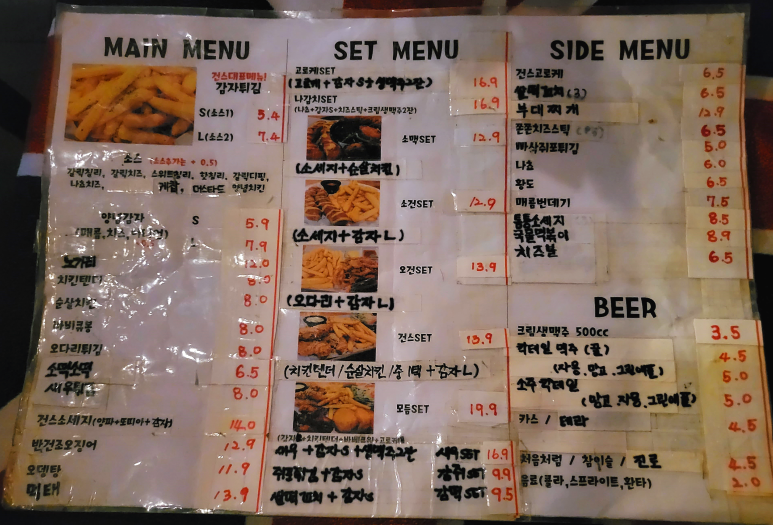 MAIN MENU
건스대표메뉴!
감자튀김
S(소스1) 5.4
L(소스2) 7.4
소스 (소스추가는 + 0.5)
갈릭칠리, 갈릭치즈, 스위트칠리, 핫칠리, 갈릭디핑,
나쵸치즈, 케찹, 머스타드, 양념치킨
양념감자 S 5.9
(매콤,치즈, 7.9
노가리 12.0
치킨텐더 8.0
순살치킨 8.0
바비큐봉 8.0
오다리튀김 8.0
소떡소떡 6.5
새우튀김 8.0
건스소세지(양파+또띠아+감자) 14.0
반건조오징어 12.9
오뎅탕 11.9
먹태 13.9
SET MENU
고로케SET
(고로케 + 감자S + 생맥주2잔) 16.9
나감치SET 16.9
(나쵸+감자S+치즈스틱+크림생맥주2잔)
소맥SET 12.9
(소세지+순살치킨)
소건SET 12.9
(소세지+감자L)
오건SET 13.9
(오다리+감자L)
건스SET 13.9
(치킨텐더/순살치킨/중 1택 +감자L)
모듬SET 19.9
새우 +감자S +생맥주2잔 새우SET 16.9
쥐포튀김 +감자S 감쥐SET 9.9
쌀떡꼬치 + 감자S 감떡SET 9.5
SIDE MENU
건스고로케 6.5
쌀떡꼬치(3) 6.5
부대찌개 12.9
쫀쫀치즈스틱 6.5
빠삭쥐포튀김 5.0
나쵸 6.0
황도 6.5
매콤번데기 7.5
통통소세지 8.5
국물떡볶이 8.9
치즈볼 6.5
BEER
크림생맥주 500cc 3.5
칵테일 맥주 (꿀) 4.5
(자몽,망고,그린애플) 5.0
소주 칵테일 5.0
(망고 자몽,그린애플)
카스 / 테라 4.5
처음처럼 / 참이슬 / 진로 4.5
음료(콜라,스프라이트,환타) 2.0